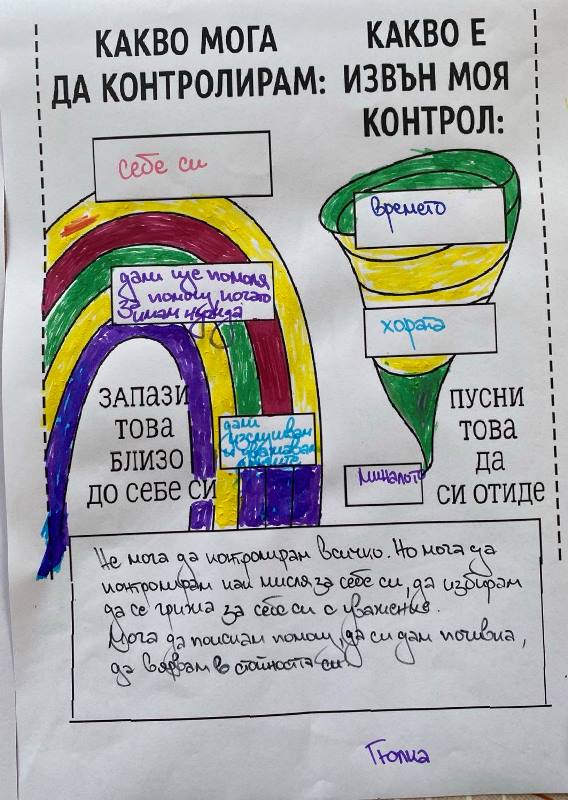 КАКВО МОГА
ДА КОНТРОЛИРАМ:
себе си
дали ще помоля
за помощ, когато
имам нужда
дали
изслушвам
и уважавам
ЗАПАЗИ
ТОВА
БЛИЗО
ДО СЕБЕ СИ
КАКВО Е
ИЗВЪН МОЯ
КОНТРОЛ:
времето
хората
миналото
ПУСНИ
ТОВА
ДА
СИ ОТИДЕ
Не мога да контролирам всичко. Но мога да
контролирам как мисля за себе си, да избирам
да се грижа за себе си с уважение.
Мога да поискам помощ, да си дам почивка,
да вярвам в стойността си
Гюлка